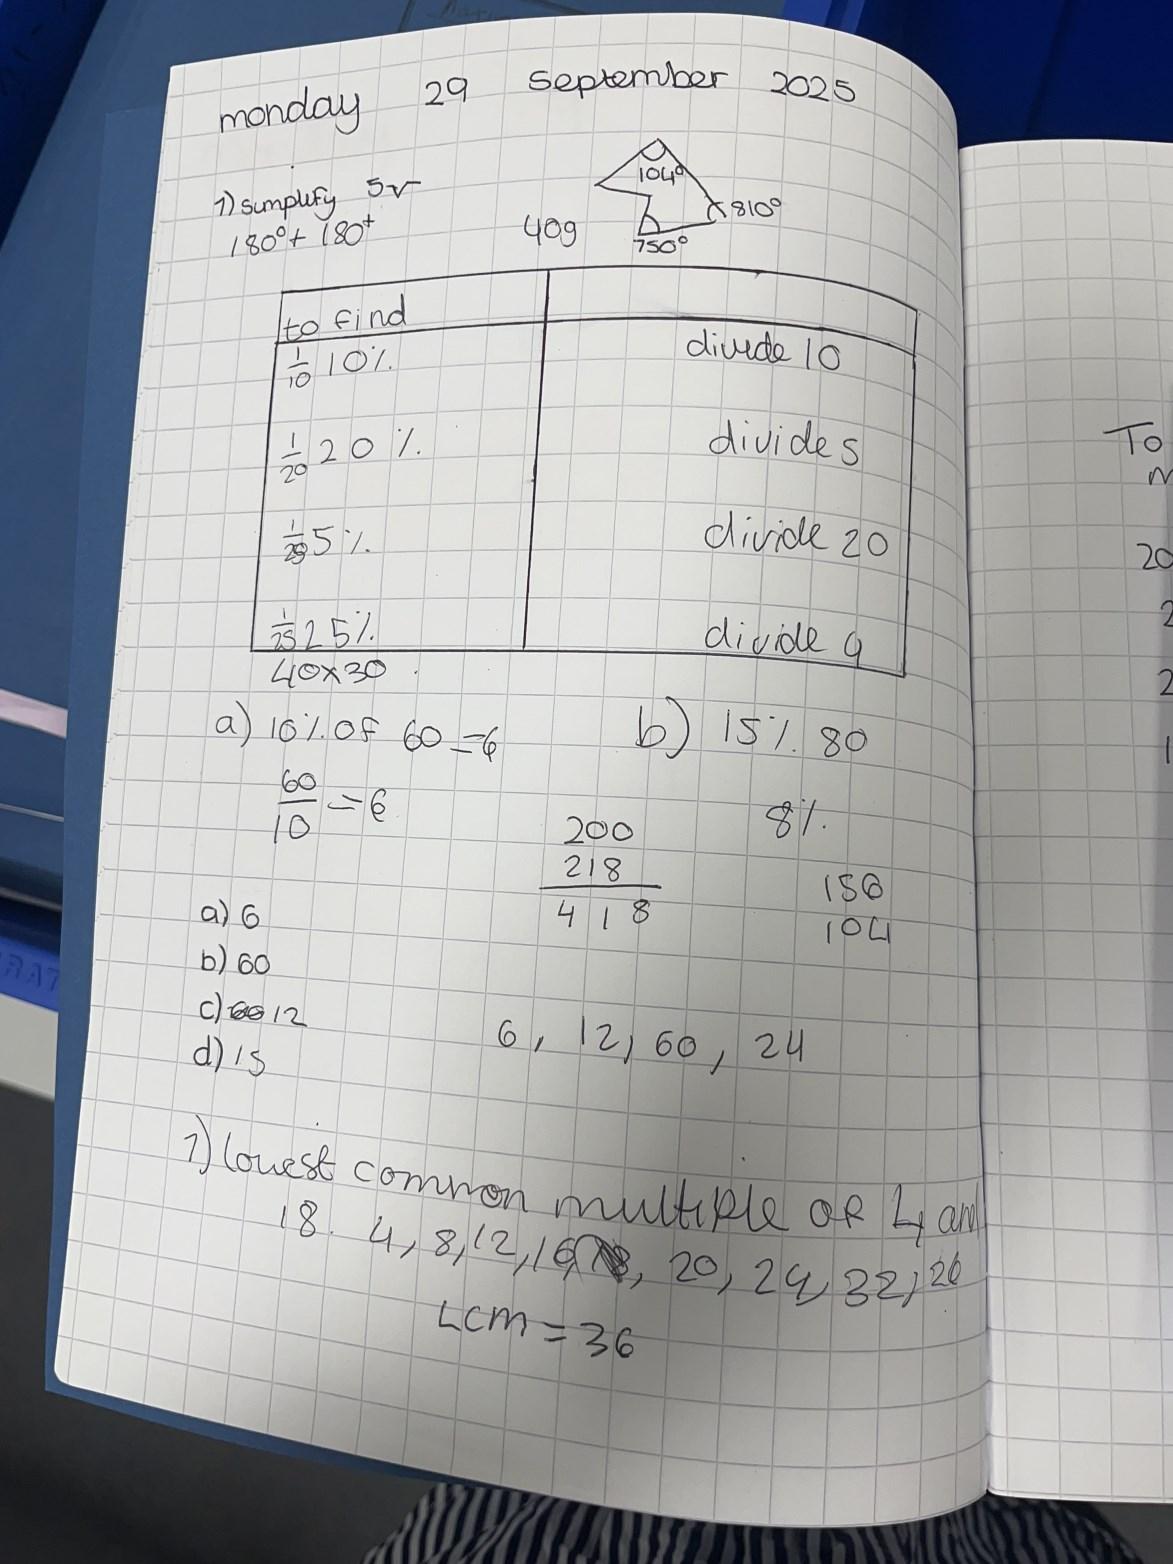 monday 29 September 2025
1) simplify 5r
180° + 180+
104°
810°
40g
750°
to find
1/10 10% divide 10
1/20 20% divide 5
5% divide 20
1/25 25% divide 9
40x30
a) 10% of 60 = 6 b) 15% 80
60/10 = 6 8%
200
218
418
150
104
a) 6
b) 60
c) 12
d) 15
6, 12, 60, 24
1) lowest common multiple of 4 and
18. 4, 8, 12, 16, 20, 24, 32, 26
LCM = 36
To
20
2
2
1